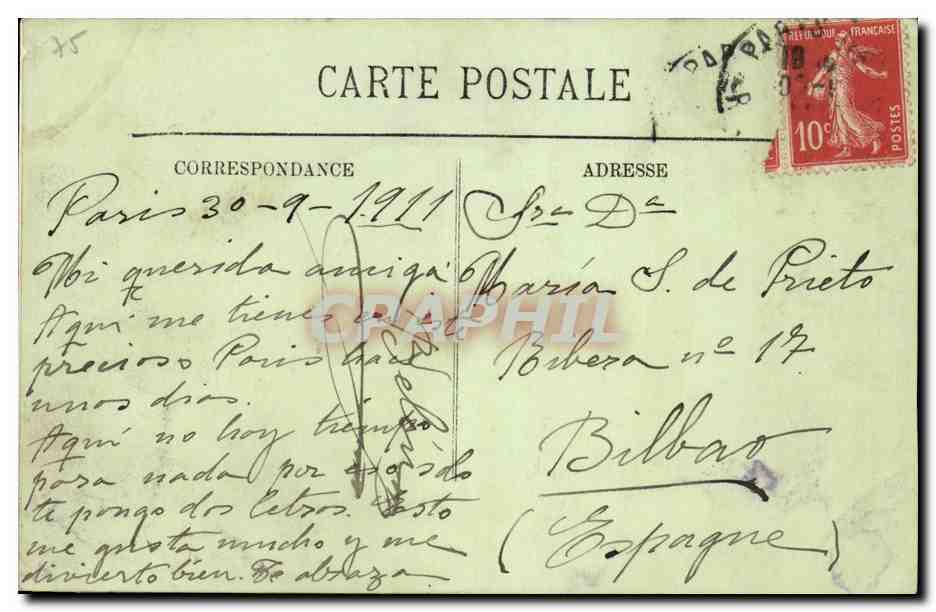 75
CARTE POSTALE
CORRESPONDANCE
Paris 30-9-1911
Mi querida amiga
Aquí me tienes en est
precioso Paris hace
unos dias.
Aquí no hay tiempo
para nada por eso sólo
te pongo dos letras. Esto
me gusta mucho y me
divierto bien. Te abraza
ADRESSE
Sra Da
María S. de Prieto
Ribera no 17
Bilbao
(Espagne)
REPUBLIQUE FRANÇAISE
10c
POSTES
PAR
PAR
CPAPHIL